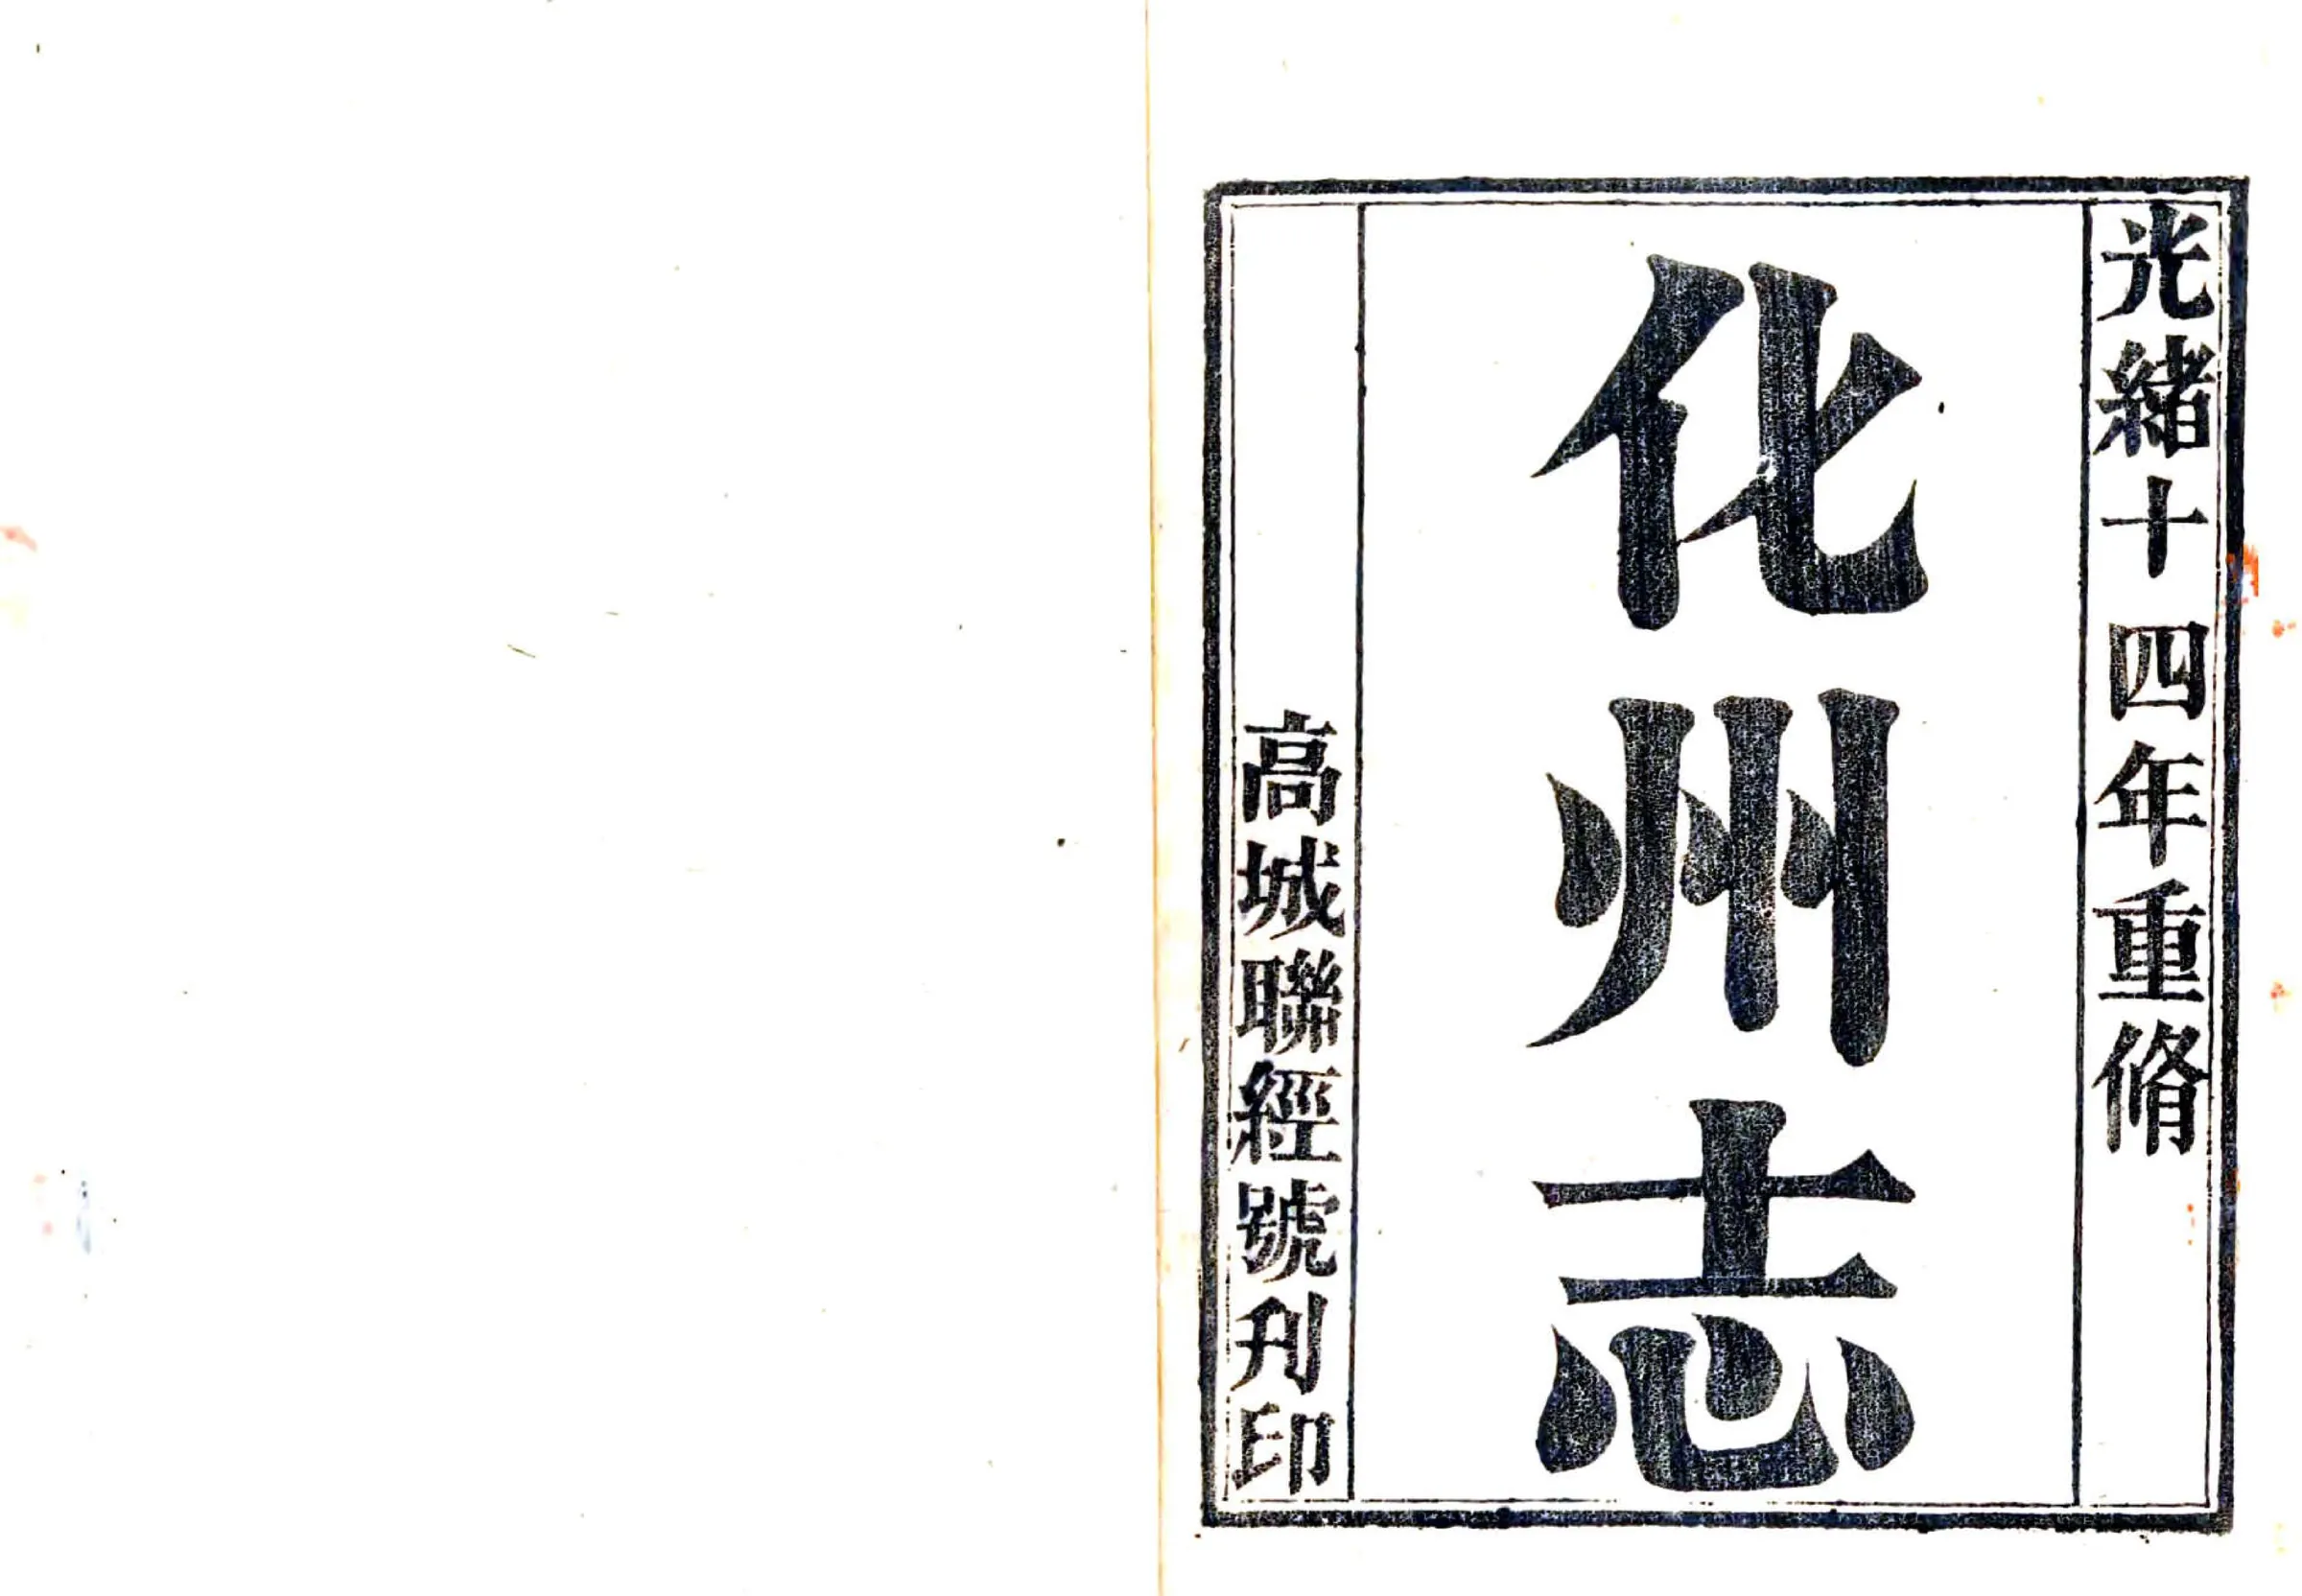 光緒十四年重脩
化州志
高城聯經號刋印